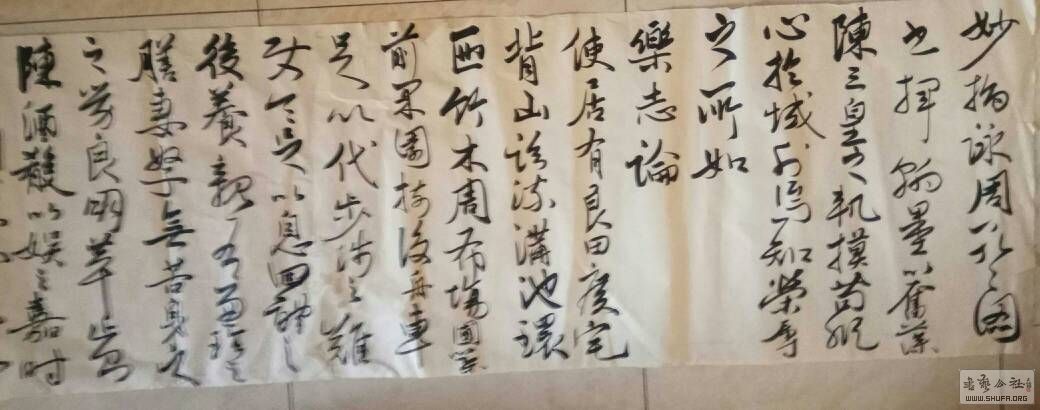 妙指詠周孔之圖
書揮翰墨以奮藻
陳三皇之軌摸苟縱
心於域外焉知榮辱
之所如
樂志論
使居有良田廣宅
背山臨流溝池環
匝竹木周布場圃築
前果園樹後舟車
足以代步涉之難
使令足以息四體之
役養親有兼珍之
膳妻孥無苦身
之勞良朋萃止則
陳酒殽以娛之嘉时
書藝公社
WWW.SHUFA.ORG